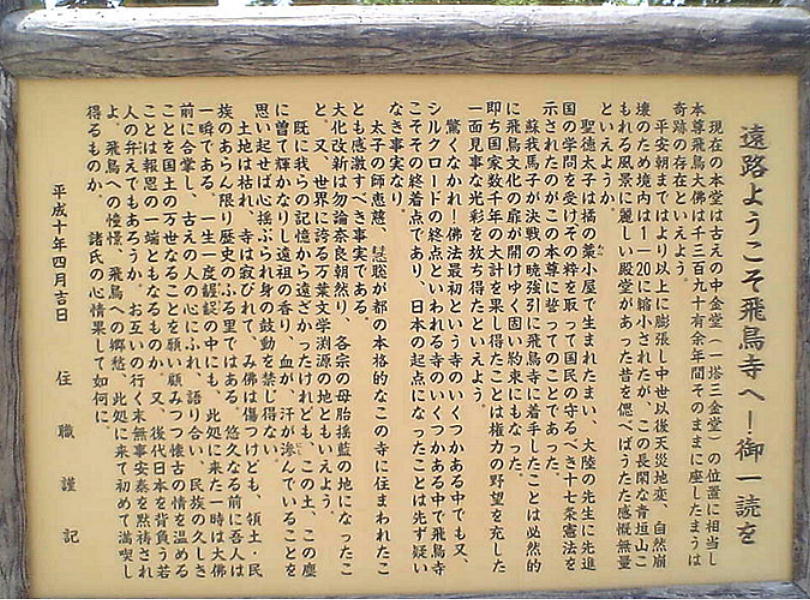 遠路ようこそ飛鳥寺へ!御一読を
現在の本堂は古えの中金堂(一塔三金堂)の位置に相当し
本尊飛鳥大佛は千三百九十有余年間そのままに座したまうは
奇跡の存在といえよう。
平安朝まではより以上に膨張し中世以後天災地変、自然崩
壊のため境内は1—20に縮小されたが、この長閑な青垣山こ
もれる風景に麗しい殿堂があった昔を偲べばうたた感慨無量
といえようか。
聖徳太子は橘の藁小屋で生まれたまい、大陸の先生に先進
国の学問を受けその粋を取って国民の守るべき十七条憲法を
示されたのがこの本尊に誓ってのことであった。
蘇我馬子が決戦の暁強引に飛鳥寺に着手したことは必然的
に飛鳥文化の扉が開けゆく固い約束にもなった。
即ち国家数千年の大計を果し得たことは権力の野望を充した
一面見事な光彩を放ち得たといえよう。
驚くなかれ!佛法最初という寺のいくつかある中でも又、
シルクロードの終点といわれる寺のいくつかある中で飛鳥寺
こそその終着点であり、日本の起点になったことは先ず疑い
なき事実なり。
太子の師恵慈、慧聡が都の本格的なこの寺に住まわれたこ
とも感激すべき事実である。
大化改新は勿論奈良朝然り、各宗の母胎揺藍の地になったこ
と。又、世界に誇る万葉文学淵源の地ともいえよう。
既に我らの記憶から遠ざかったけれども、この土、この塵
に曽て輝かなりし遠祖の香り、血が、汗が滲んでいることを
思い起せば心揺ぶられ身の鼓動を禁じ得ない。
土地は枯れ、寺は寂びれて、み佛は傷つけども、領土・民
族のあらん限り歴史のふる里ではある。悠久なる前に吾人は
一瞬である。一生一度齷齪の中にも、此処に来た一時は大佛
前に合掌し、古えの人の心にふれ、語り合い、民族の久しき
ことを国土の万世なることを願い顧みつつ懐古の情を温める
ことは報恩の一端ともなるものか。又、後代日本を背負う若
人の弁えでもあろうか。お互いの行く末無事安泰を黙祷され
よ。飛鳥への憧憬、飛鳥への郷愁、此処に来て初めて満喫し
得るものか。諸氏の心情果して如何に。
平成十年四月吉日
住職謹記